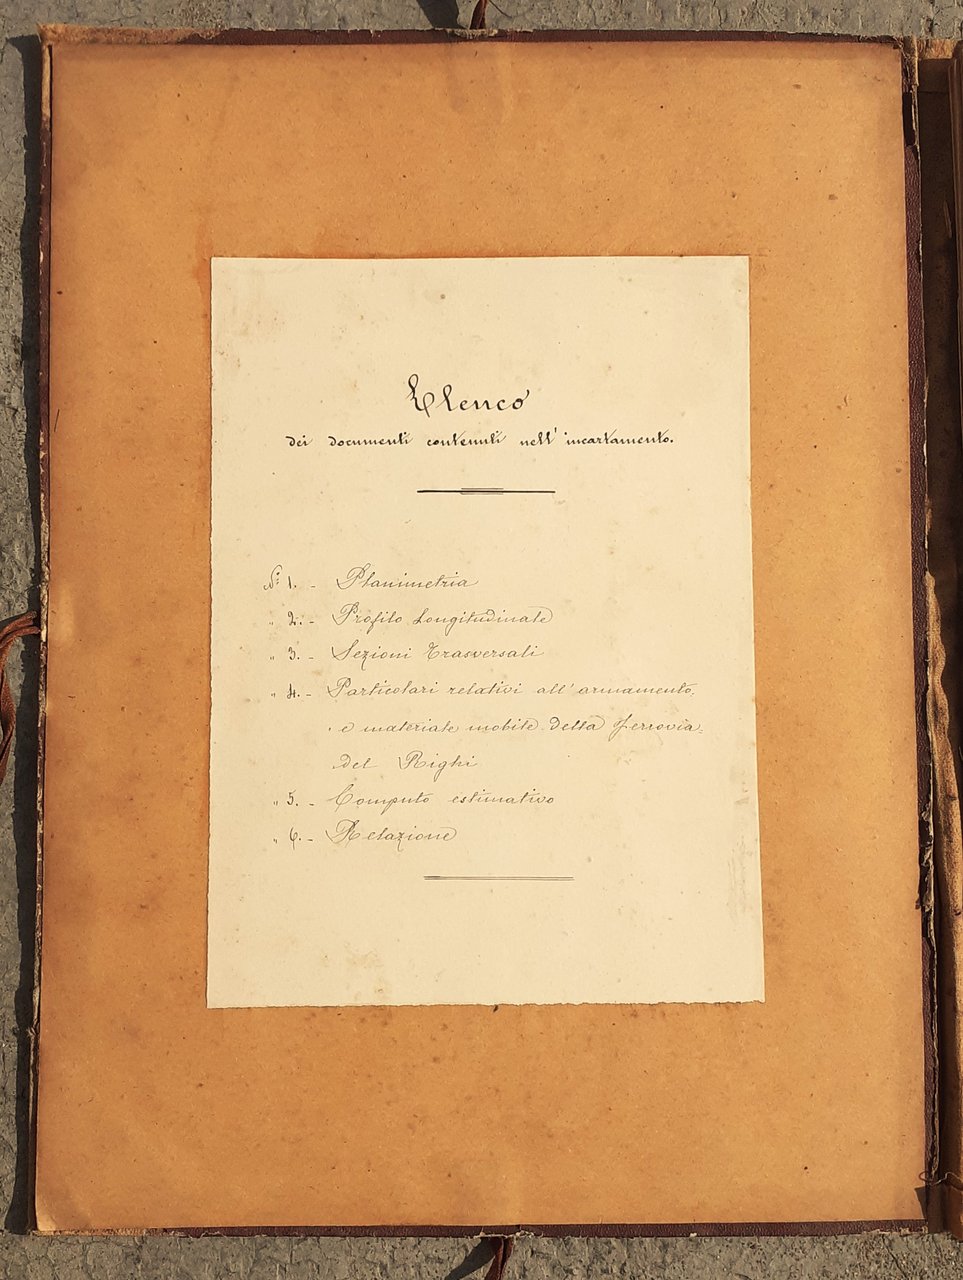 Elenco
dei documenti contenuti nell'incartamento.
N: 1. - Planimetria
" 2. - Profilo Longitudinale
" 3. - Sezioni Trasversali
" 4. - Particolari relativi all'armamento,
e materiale mobile della Ferrovia
del Righi
" 5. - Computo estimativo
" 6. - Relazione